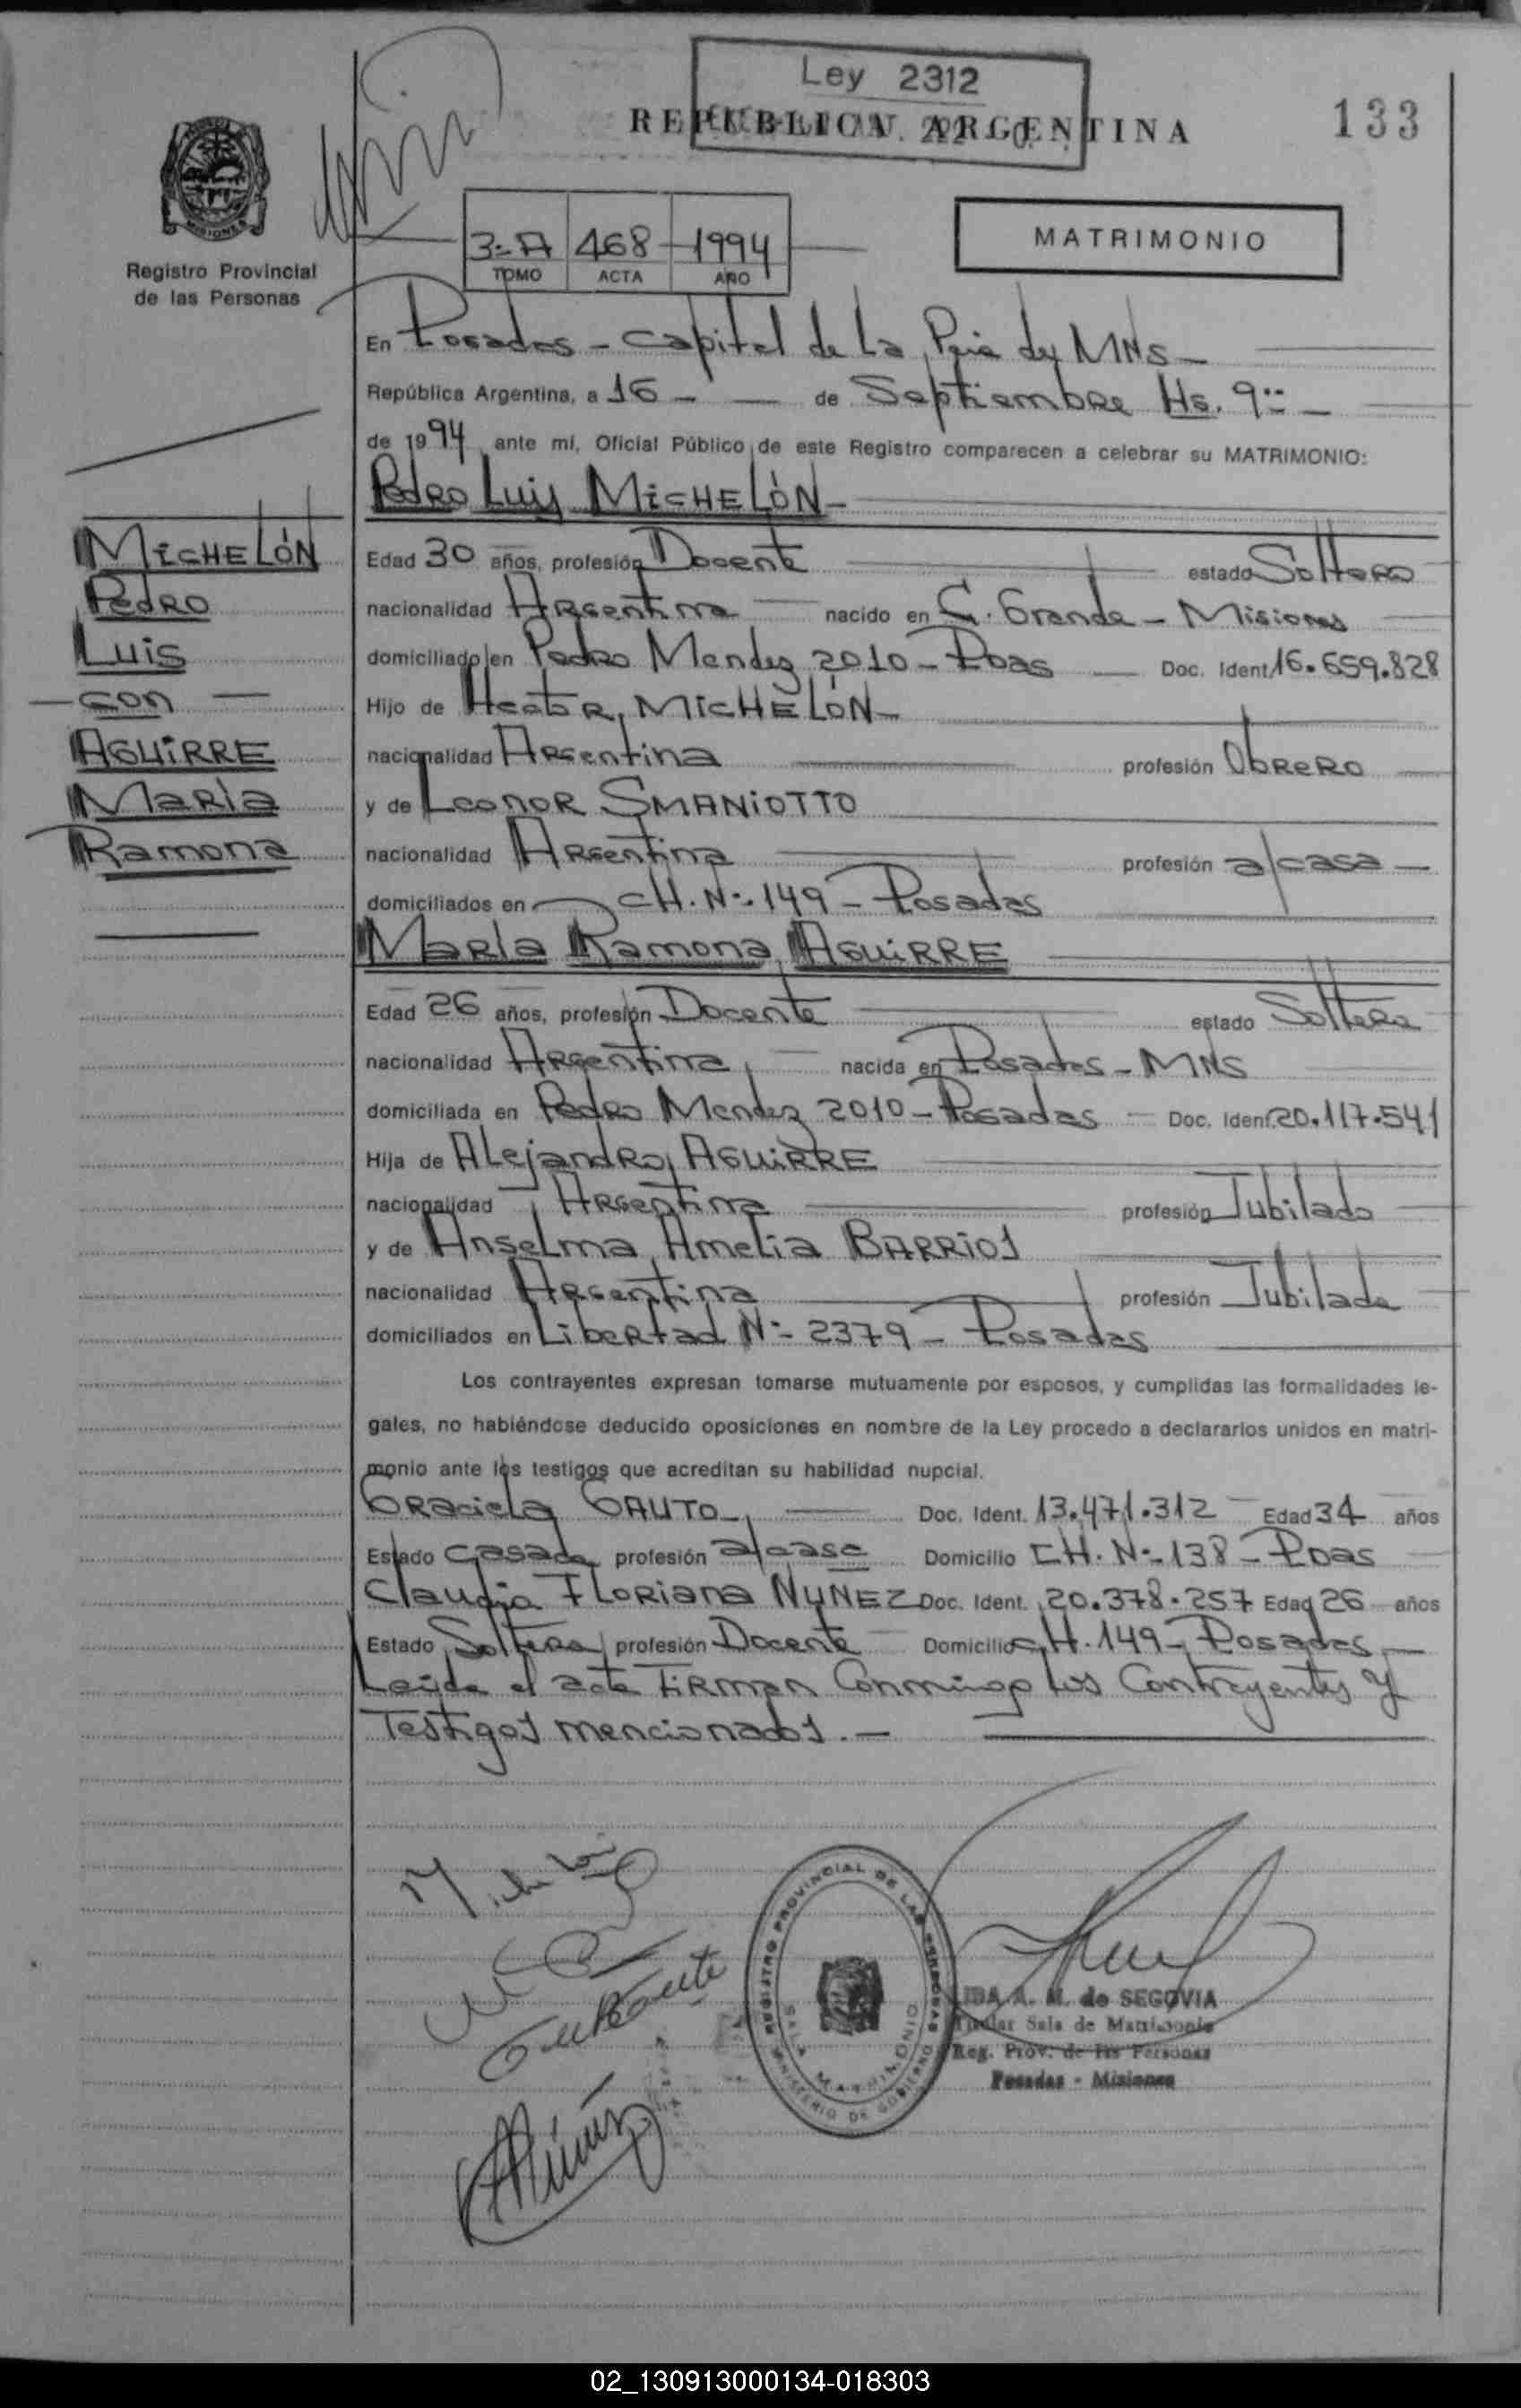 Ley 2312
REPUBLICA ARGENTINA
133
MISIONES
Registro Provincial
de las Personas
3-A 468 1994
TOMO ACTA AÑO
MATRIMONIO
En Posadas - Capital de La Pcia de MNS -
República Argentina, a 16 - de Septiembre Hs. 9:-
de 1994 ante mí, Oficial Público de este Registro comparecen a celebrar su MATRIMONIO:
Pedro Luis MICHELÓN -
MICHELÓN
Pedro
Luis
- con -
AGUIRRE
María
Ramona
Edad 30 años, profesión Docente estado Soltero
nacionalidad Argentina nacido en C. Grande - Misiones
domiciliado en Pedro Mendez 2010 - Pdas Doc. Ident. 16.659.828
Hijo de Hector MICHELÓN -
nacionalidad Argentina profesión Obrero
y de Leonor SMANIOTTO
nacionalidad Argentina profesión a/casa -
domiciliados en CH. Nº 149 - Posadas
María Ramona AGUIRRE
Edad 26 años, profesión Docente estado Soltera
nacionalidad Argentina nacida en Posadas - MNS
domiciliada en Pedro Mendez 2010 - Posadas - Doc. Ident. 20.117.541
Hija de Alejandro AGUIRRE
nacionalidad Argentina profesión Jubilado
y de Anselma Amelia BARRIOS
nacionalidad Argentina profesión Jubilada
domiciliados en Libertad Nº 2379 - Posadas
Los contrayentes expresan tomarse mutuamente por esposos, y cumplidas las formalidades le-
gales, no habiéndose deducido oposiciones en nombre de la Ley procedo a declararlos unidos en matri-
monio ante los testigos que acreditan su habilidad nupcial.
Graciela GAUTO - Doc. Ident. 13.471.312 Edad 34 años
Estado Casada profesión a/casa Domicilio CH. Nº 138 - Pdas
Claudia Floriana NUÑEZ Doc. Ident. 20.378.257 Edad 26 años
Estado Soltera profesión Docente Domicilio CH. 149 - Posadas
Leída el acta Firman Conmigo los Contrayentes y
Testigos mencionados. -
REGISTRO PROVINCIAL DE LAS PERSONAS
SALA MATRIMONIO
MINISTERIO DE GOBIERNO
A. M. de SEGOVIA
Titular Sala de Matrimonio
Reg. Prov. de las Personas
Posadas - Misiones
02_130913000134-018303